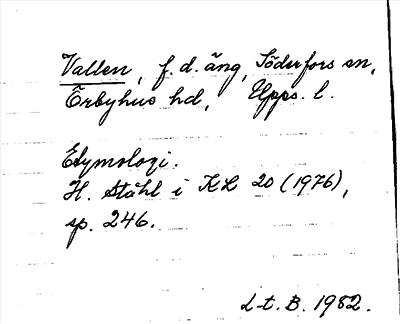 Vallen, f.d. äng, Söderfors sn,
Örbyhus hd, Upps. l.
Etymologi.
H. Ståhl i KL 20 (1976),
sp. 246.
L-t. B. 1982.